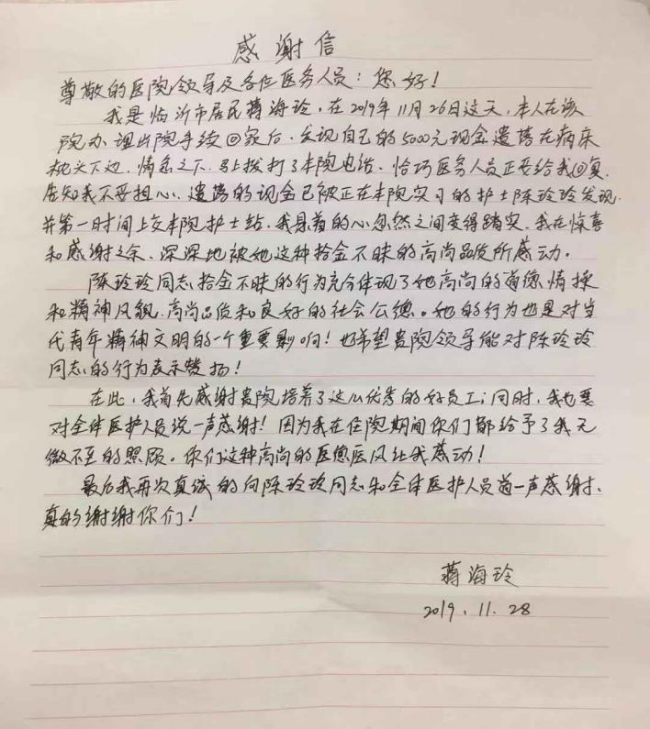 感谢信
尊敬的医院领导及各位医务人员：您好！
我是临沂市居民蒋海玲，在2019年11月26日这天，本人在该
院办理出院手续回家后，发现自己的5000元现金遗落在病床
枕头下边，情急之下，马上拨打了本院电话，恰巧医务人员正要给我回复，
告知我不要担心，遗落的现金已被正在本院实习的护士陈玲玲发现，
并第一时间上交本院护士站，我悬着的心忽然之间变得踏实，我在惊喜
和感谢之余，深深地被她这种拾金不昧的高尚品质所感动。
陈玲玲同志拾金不昧的行为充分体现了她高尚的道德情操
和精神风貌，高尚品质和良好的社会公德。她的行为也是对当
代青年精神文明的一个重要影响！也希望贵院领导能对陈玲玲
同志的行为表示赞扬！
在此，我首先感谢贵院培养了这么优秀的好员工；同时，我也要
对全体医护人员说一声感谢！因为我在住院期间你们都给予了我无
微不至的照顾。你们这种高尚的医德医风让我感动！
最后我再次真诚的向陈玲玲同志和全体医护人员道一声感谢、
真的谢谢你们！
蒋海玲
2019.11.28